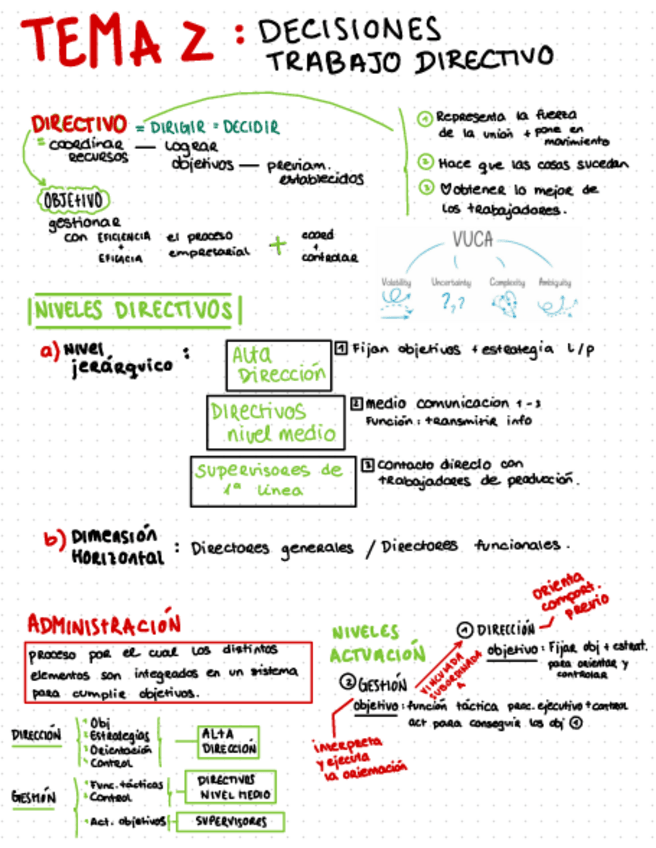 TEMA 2 : DECISIONES
TRABAJO DIRECTIVO
DIRECTIVO = DIRIGIR = DECIDIR
= coordinar — Lograr
recursos objetivos — previam.
establecidos
① Representa la fuerza
de la union + pone en
movimiento
② Hace que las cosas sucedan
③ obtener lo mejor de
los trabajadores.
OBJETIVO
gestionar
con EFICIENCIA el proceso + coord
+ empresarial +
EFICACIA controlar
VUCA
Volatility Uncertainty Complexity Ambiguity
?,?
NIVELES DIRECTIVOS
a) Nivel
jerárquico :
Alta
Dirección
1 Fijan objetivos + estrategia L/P
Directivos
nivel medio
2 medio comunicacion 1-3
Función: transmitir info
Supervisores de
1ª Línea
3 contacto directo con
trabajadores de producción.
b) Dimensión
Horizontal : Directores generales / Directores funcionales.
ADMINISTRACIÓN
proceso por el cual los distintos
elementos son integrados en un sistema
para cumplir objetivos.
NIVELES
ACTUACIÓN
orienta
comport.
previo
① DIRECCIÓN
objetivo: Fijar obj + estrat.
para orientar y
controlar
VINCULADA
SUBORDINADA
A
② GESTIÓN
objetivo: función táctica proc. ejecutivo + control
act para conseguir los obj ①
interpreta
y ejecuta
la orientación
DIRECCIÓN
· Obj
· Estrategias
· Orientación
· Control
ALTA
DIRECCIÓN
GESTIÓN
· Func. tácticas
· Control
DIRECTIVOS
NIVEL MEDIO
· Act. objetivos
SUPERVISORES